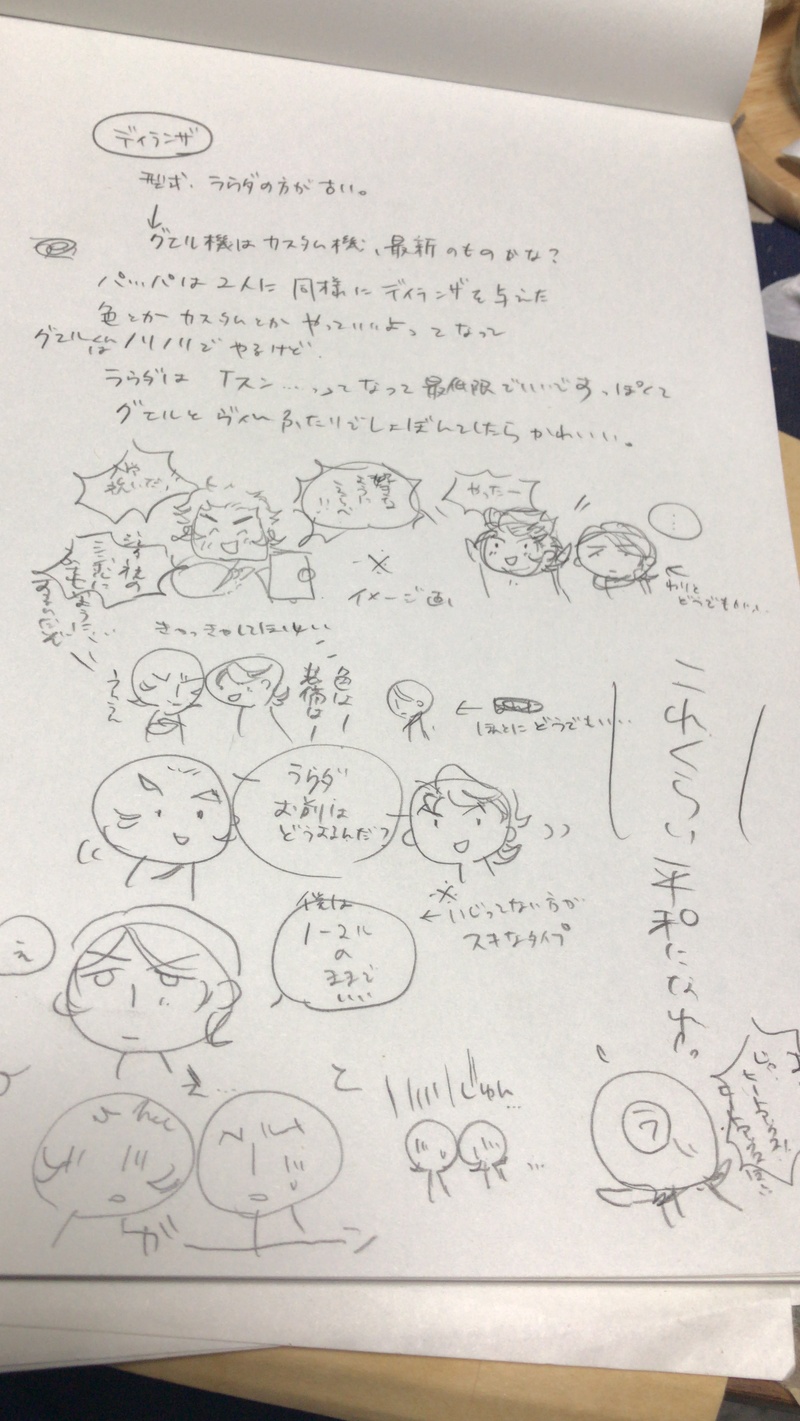 ディランザ
型式、ラウダの方が古い。
↓
グエル機はカスタム機、最新のものかな?
パッパは2人に同様にディランザを与えた
色とかカスタムとかやっていいよってなって
グエルくんはノリノリでやるけど、
ラウダは Tスン……ってなって最低限でいいですっぽくて
グエルとヴィムふたりでしょぼんてしたらかわいい。
好きな
ように
えらべ
やったー
……
わりと
どうでもいい…
※
イメージ画
きゃっきゃしてほしい
ええ
色はー
装備はー
←
ほんとにどうでもいい…
これくらい平和になれ。
ラウダ
お前は
どうするんだ?
※
←いじってない方が
スキなタイプ
僕は
ノーマル
の
ままで
いい
え
え…
と
しゅん…
…
ラ
ガーン